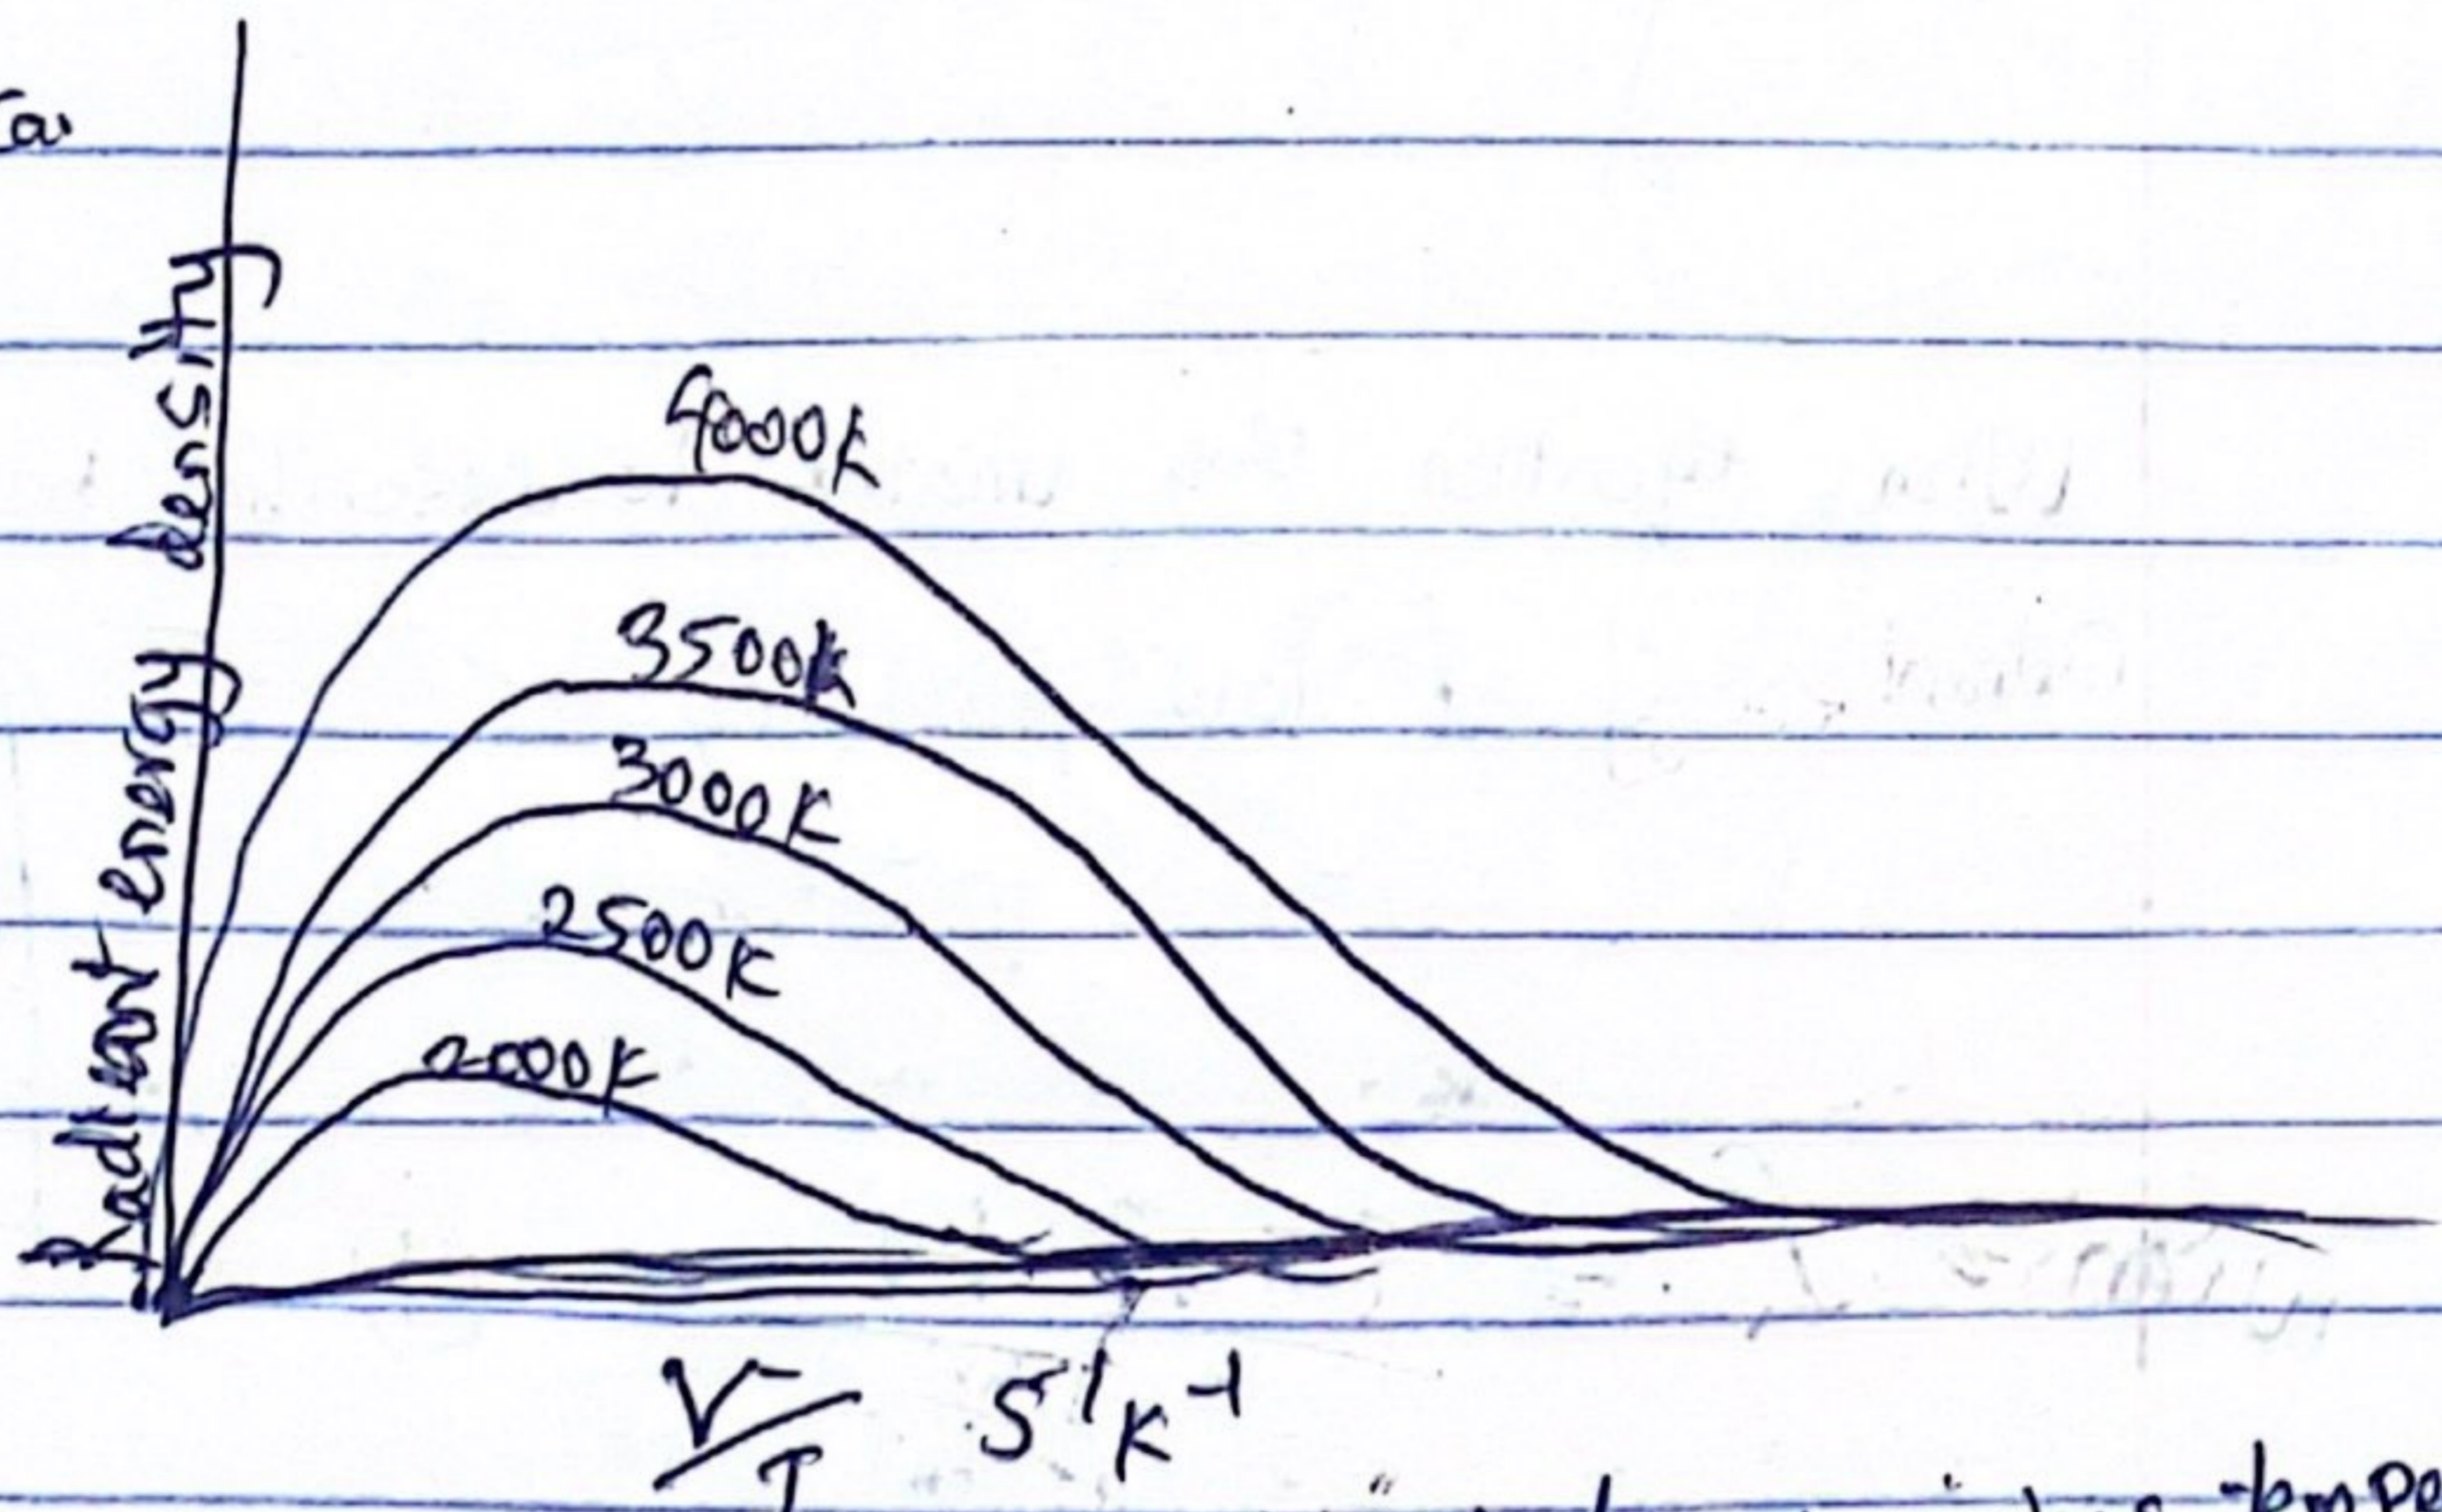 Radient energy density
4000K
3500K
3000K
2500K
2000K
V/T S-1K-1